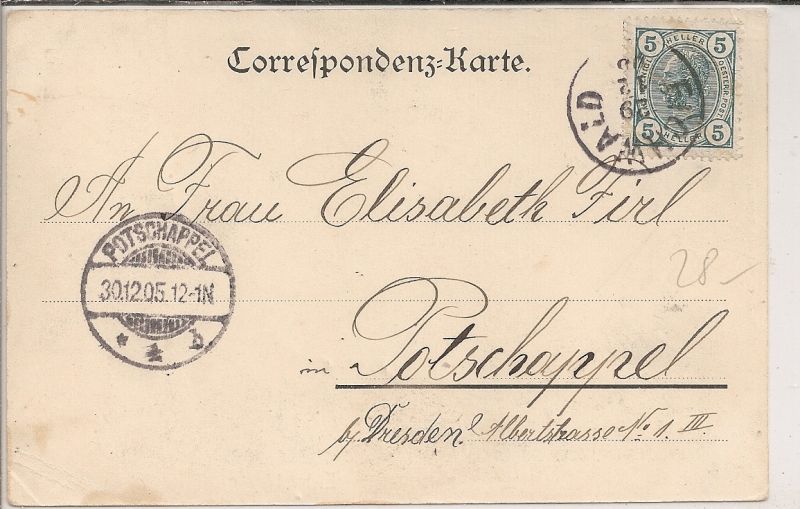 Correspondenz-Karte.
5 HELLER 5
5 HELLER 5
EICHWALD
An Frau Elisabeth Firl
POTSCHAPPEL
30.12.05.12-1N
* 2 b
28-
in Potschappel
b/ Dresden. Albertstrasse No 1. III